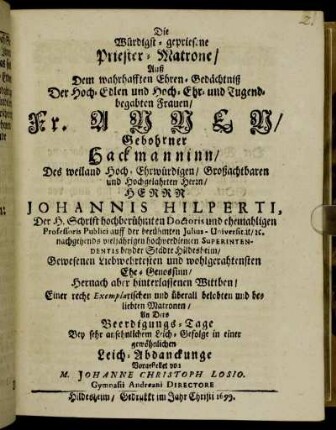 2.
Die
Würdigst-gepriesene
Priester-Matrone/
Auß
Dem wahrhafften Ehren-Gedächtniß
Der Hoch-Edlen und Hoch-Ehr-und Tugend-
begabten Frauen/
Fr.
Gebohrner
Hackmanninn/
Des weiland Hoch-Ehrwürdigen/ Großachtbaren
und Hochgelahrten Herrn/
HERRN
JOHANNIS HILPERTI,
Der H. Schrifft hochberühmten Doctoris und ehemahligen
Professoris Publici auff der berühmten Julius-Universität/ ꝛc.
nachgehends vieljährigen hochverdienten SUPERINTEN-
DENTIS beyder Städte Hildesheim/
Gewesenen Liebwehrtesten und wohlgerahtensten
Ehe-Genossinn/
Hernach aber hinterlassenen Wittben/
Einer recht Exemplarischen und überall belobten und be-
liebten Matronen/
An Dero
Beerdigungs-Tage
Bey sehr ansehnlichem Leich-Gefolge in einer
gewöhnlichen
Leich-Abdanckunge
Vorgestellet von
M. JOHANNE CHRISTOPH LOSIO.
Gymnasii Andreani DIRECTORE
Hildesheim/ Gedruckt im Jahr Christi 1693.